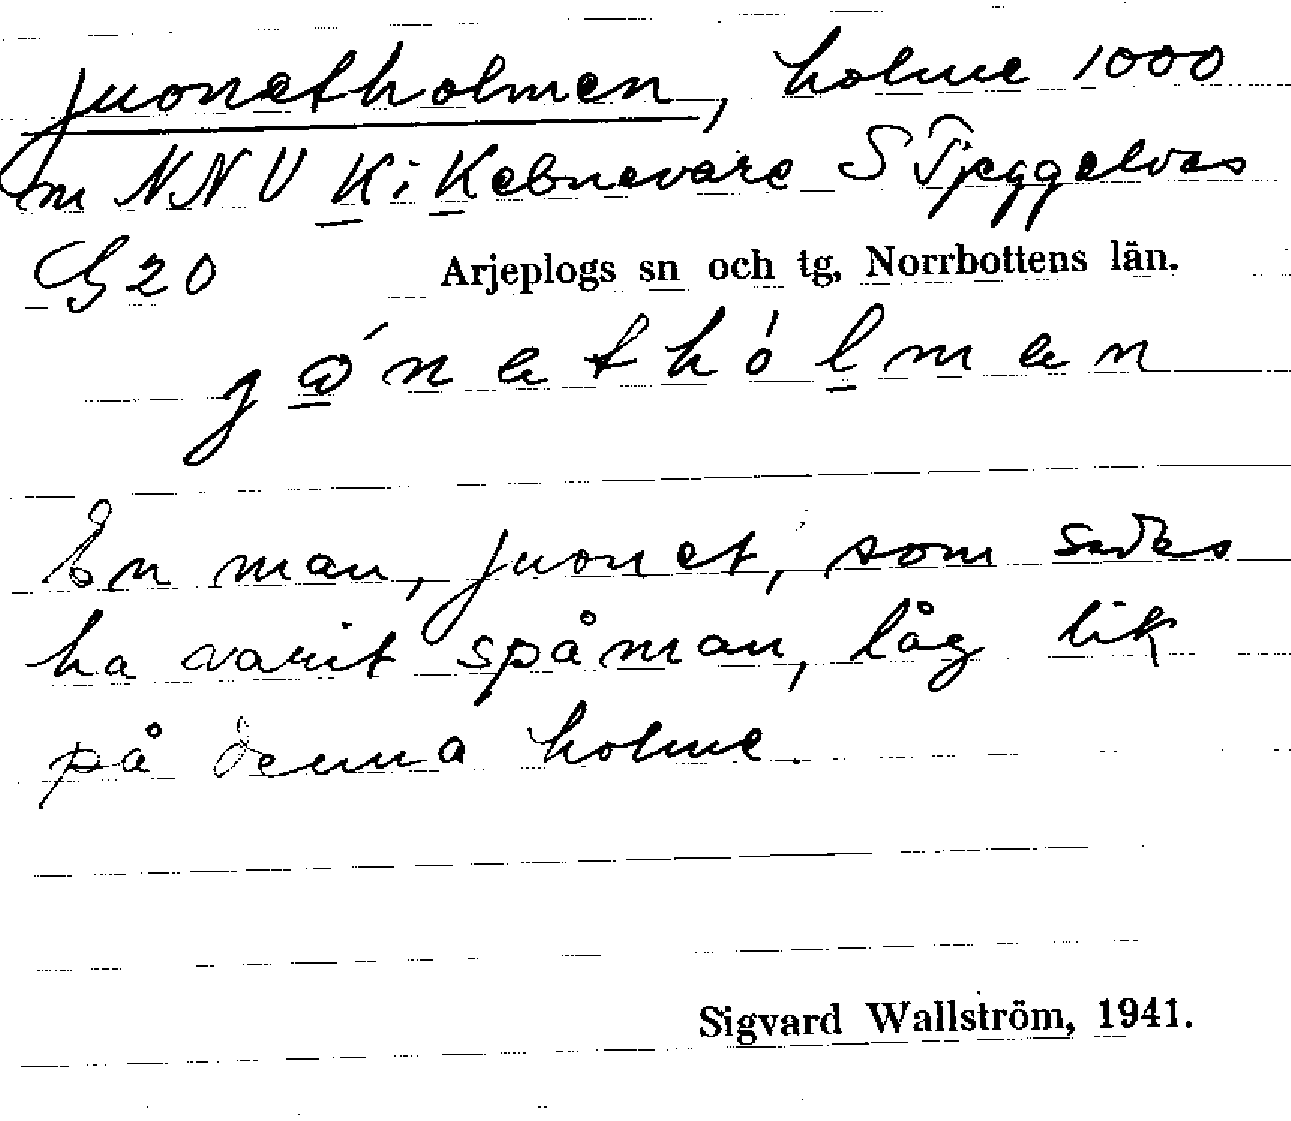 Juonetholmen, holme 1000
m NNV Ki Kebnevare S Tjeggelvas
G 20 Arjeplogs sn och tg, Norrbottens län.
En man, Juonet, som sades
ha varit spåman, låg lik
på denna holme.
Sigvard Wallström, 1941.